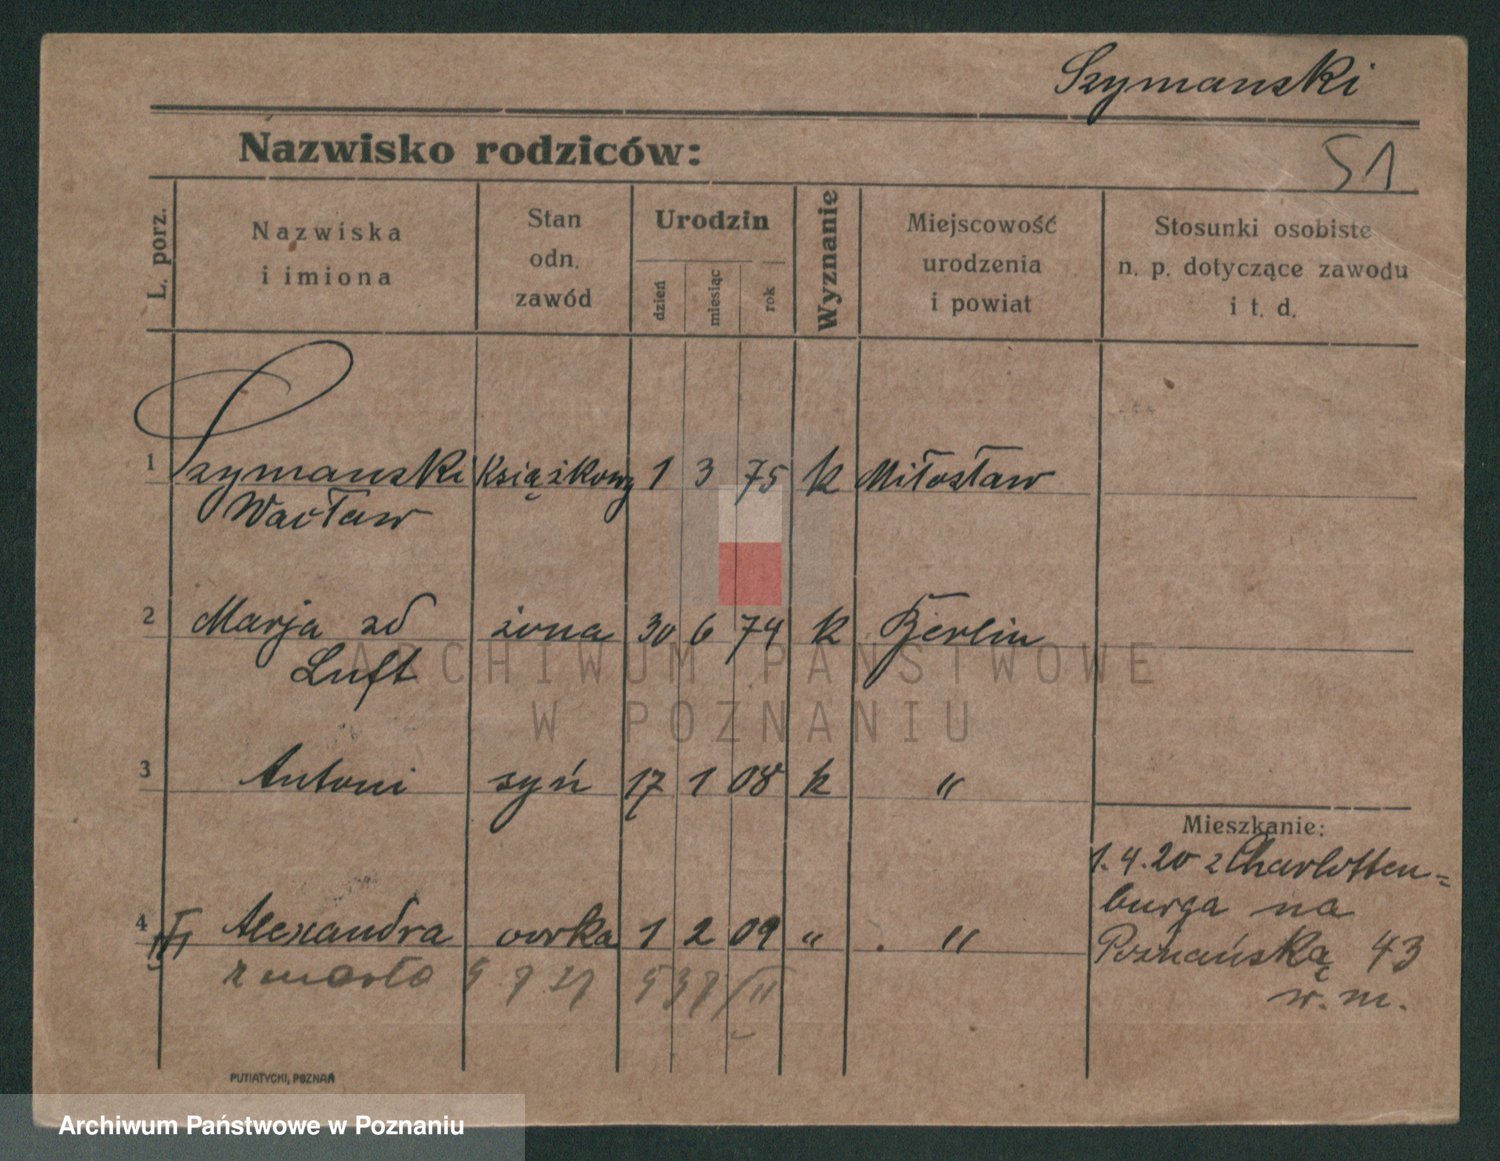 Szymanski
Nazwisko rodziców:
51
L. porz.
Nazwiska
i imiona
Stan
odn.
zawód
Urodzin
dzień
miesiąc
rok
Wyznanie
Miejscowość
urodzenia
i powiat
Stosunki osobiste
n. p. dotyczące zawodu
i t. d.
1 Szymanski książkowy 1 3 75 k Miłosław
Wacław
2 Marja zd żona 30 6 74 k Berlin
Luft
3 Antoni syn 17 1 08 k "
Mieszkanie:
1.4.20 z Charlotten=
burga na
4 Alexandra córka 1 2 09 " "
Poznańską 43
w. m.
zmarła
PUTIATYCKI, POZNAŃ
ARCHIWUM PAŃSTWOWE
W POZNANIU
Archiwum Państwowe w Poznaniu